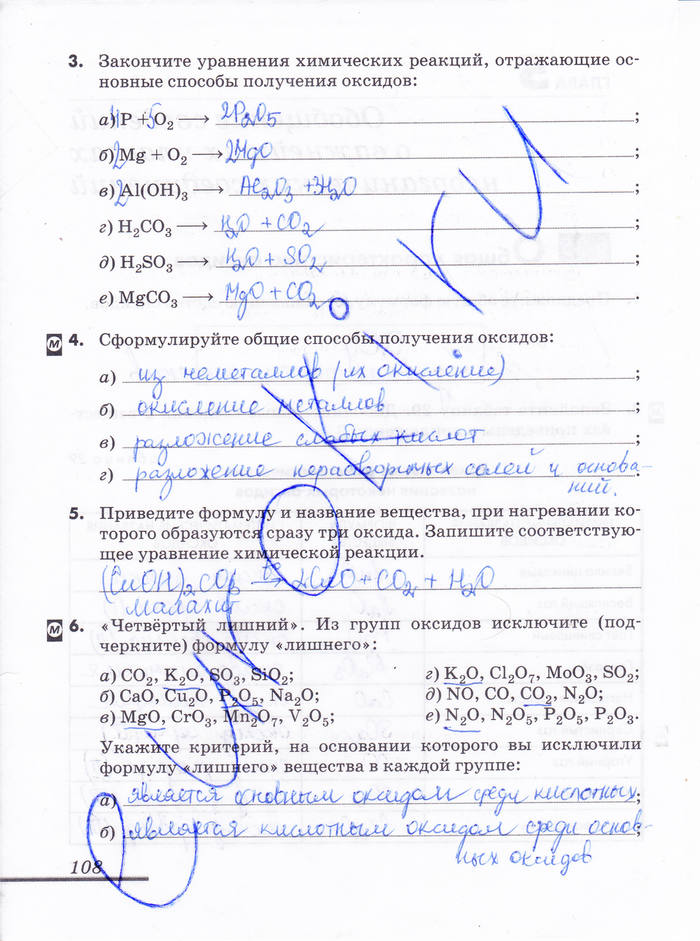 3. Закончите уравнения химических реакций, отражающие ос-
новные способы получения оксидов:
а) 4P + 5O₂ ⟶ 2P₂O₅;
б) 2Mg + O₂ ⟶ 2MgO;
в) 2Al(OH)₃ ⟶ Al₂O₃ + 3H₂O;
г) H₂CO₃ ⟶ H₂O + CO₂;
д) H₂SO₃ ⟶ H₂O + SO₂;
е) MgCO₃ ⟶ MgO + CO₂.
М 4. Сформулируйте общие способы получения оксидов:
а) из неметаллов (их окисление);
б) окисление металлов;
в) разложение слабых кислот;
г) разложение нерастворимых солей и основа-
ний.
5. Приведите формулу и название вещества, при нагревании ко-
торого образуются сразу три оксида. Запишите соответствую-
щее уравнение химической реакции.
(CuOH)₂CO₃ t° ⟶ 2CuO + CO₂ + H₂O
малахит
М 6. «Четвёртый лишний». Из групп оксидов исключите (под-
черкните) формулу «лишнего»:
а) CO₂, K₂O, SO₃, SiO₂; г) K₂O, Cl₂O₇, MoO₃, SO₂;
б) CaO, Cu₂O, P₂O₅, Na₂O; д) NO, CO, CO₂, N₂O;
в) MgO, CrO₃, Mn₂O₇, V₂O₅; е) N₂O, N₂O₅, P₂O₅, P₂O₃.
Укажите критерий, на основании которого вы исключили
формулу «лишнего» вещества в каждой группе:
а) является основным оксидом среди кислотных;
б) является кислотным оксидом среди основ-;
ных оксидов
108